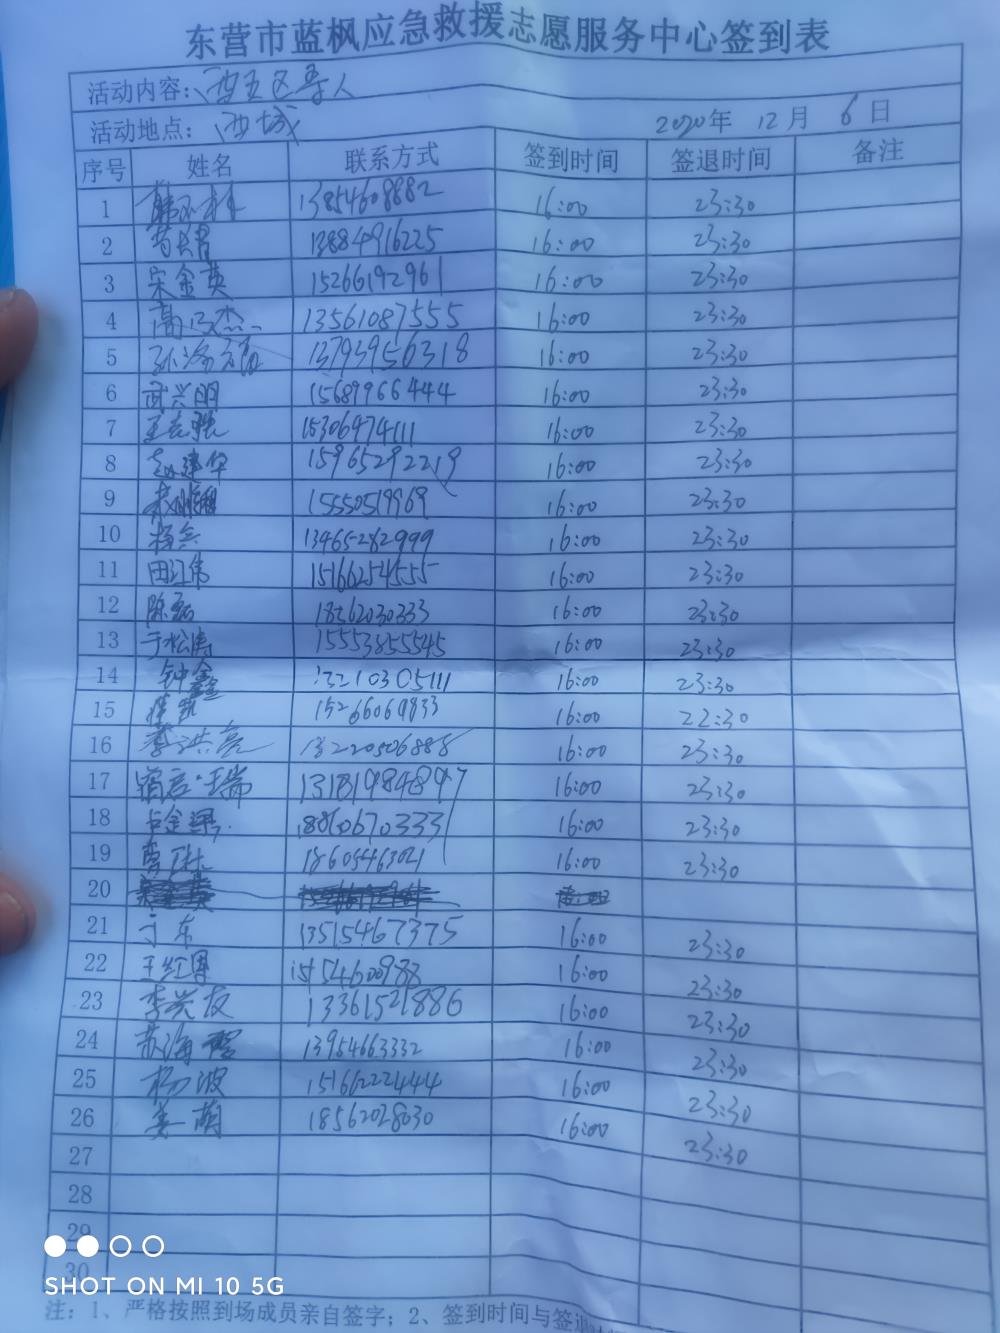 东营市蓝枫应急救援志愿服务中心签到表
活动内容: 西五区寻人
活动地点: 西城 2020年 12月 6日
序号 姓名 联系方式 签到时间 签退时间 备注
1 13854608882 16:00 23:30
2 13884916225 16:00 23:30
3 宋金英 15266192961 16:00 23:30
4 13561087555 16:00 23:30
5 13793956318 16:00 23:30
6 武兴明 15689966444 16:00 23:30
7 王志强 15306474111 16:00 23:30
8 赵建华 15965292219 16:00 23:30
9 15550519969 16:00 23:30
10 杨兵 13465282999 16:00 23:30
11 田江伟 15166254555 16:00 23:30
12 陈磊 18562030333 16:00 23:30
13 于松涛 15553855545 16:00 23:30
14 钟鑫 13210305111 16:00 23:30
15 15266069833 16:00 22:30
16 李洪亮 13220506888 16:00 23:30
17 13181984897 16:00 23:30
18 18860670333 16:00 23:30
19 18605463021 16:00 23:30
20
21 于东 13515467375 16:00 23:30
22 王红周 16:00 23:30
23 李光友 13361521886 16:00 23:30
24 苏海 13954663332 16:00 23:30
25 杨波 15166222444 16:00 23:30
26 姜萌 18562028030 16:00 23:30
27
28
29
30
SHOT ON MI 10 5G
注：1、严格按照到场成员亲自签字；2、签到时间与签退